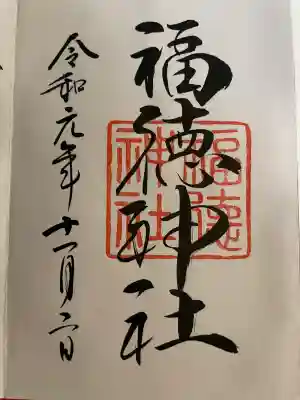 福徳神社
令和元年十一月二日
福徳
神社